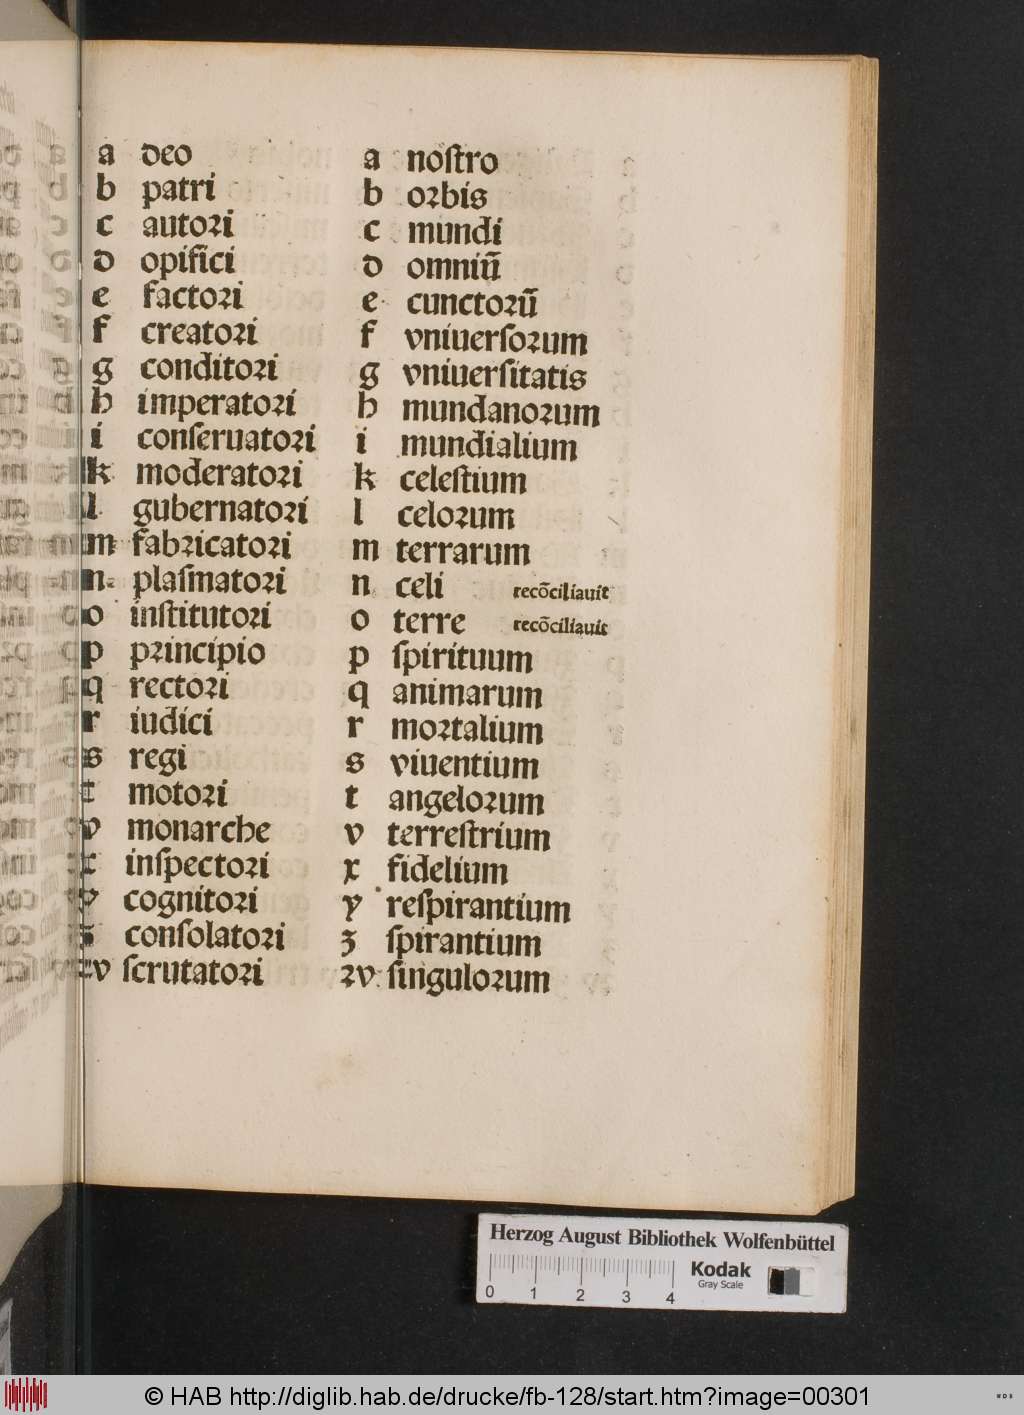 a deo a noſtro
b patri b orbis
c autori c mundi
d opifici d omniū
e factori e cunctorū
f creatori f vniuerſorum
g conditori g vniuerſitatis
h imperatori h mundanorum
i conſeruatori i mundialium
k moderatori k celeſtium
l gubernatori l celorum
m fabricatori m terrarum
n plaſmatori n celi recōciliauit
o inſtitutori o terre recōciliauit
p principio p ſpirituum
q rectori q animarum
r iudici r mortalium
s regi s viuentium
t motori t angelorum
v monarche v terreſtrium
x inſpectori x fidelium
y cognitori y reſpirantium
ʒ conſolatori ʒ ſpirantium
ꝛv ſcrutatori ꝛv ſingulorum
Herzog August Bibliothek Wolfenbüttel
Kodak
Gray Scale
0 1 2 3 4
© HAB http://diglib.hab.de/drucke/fb-128/start.htm?image=00301